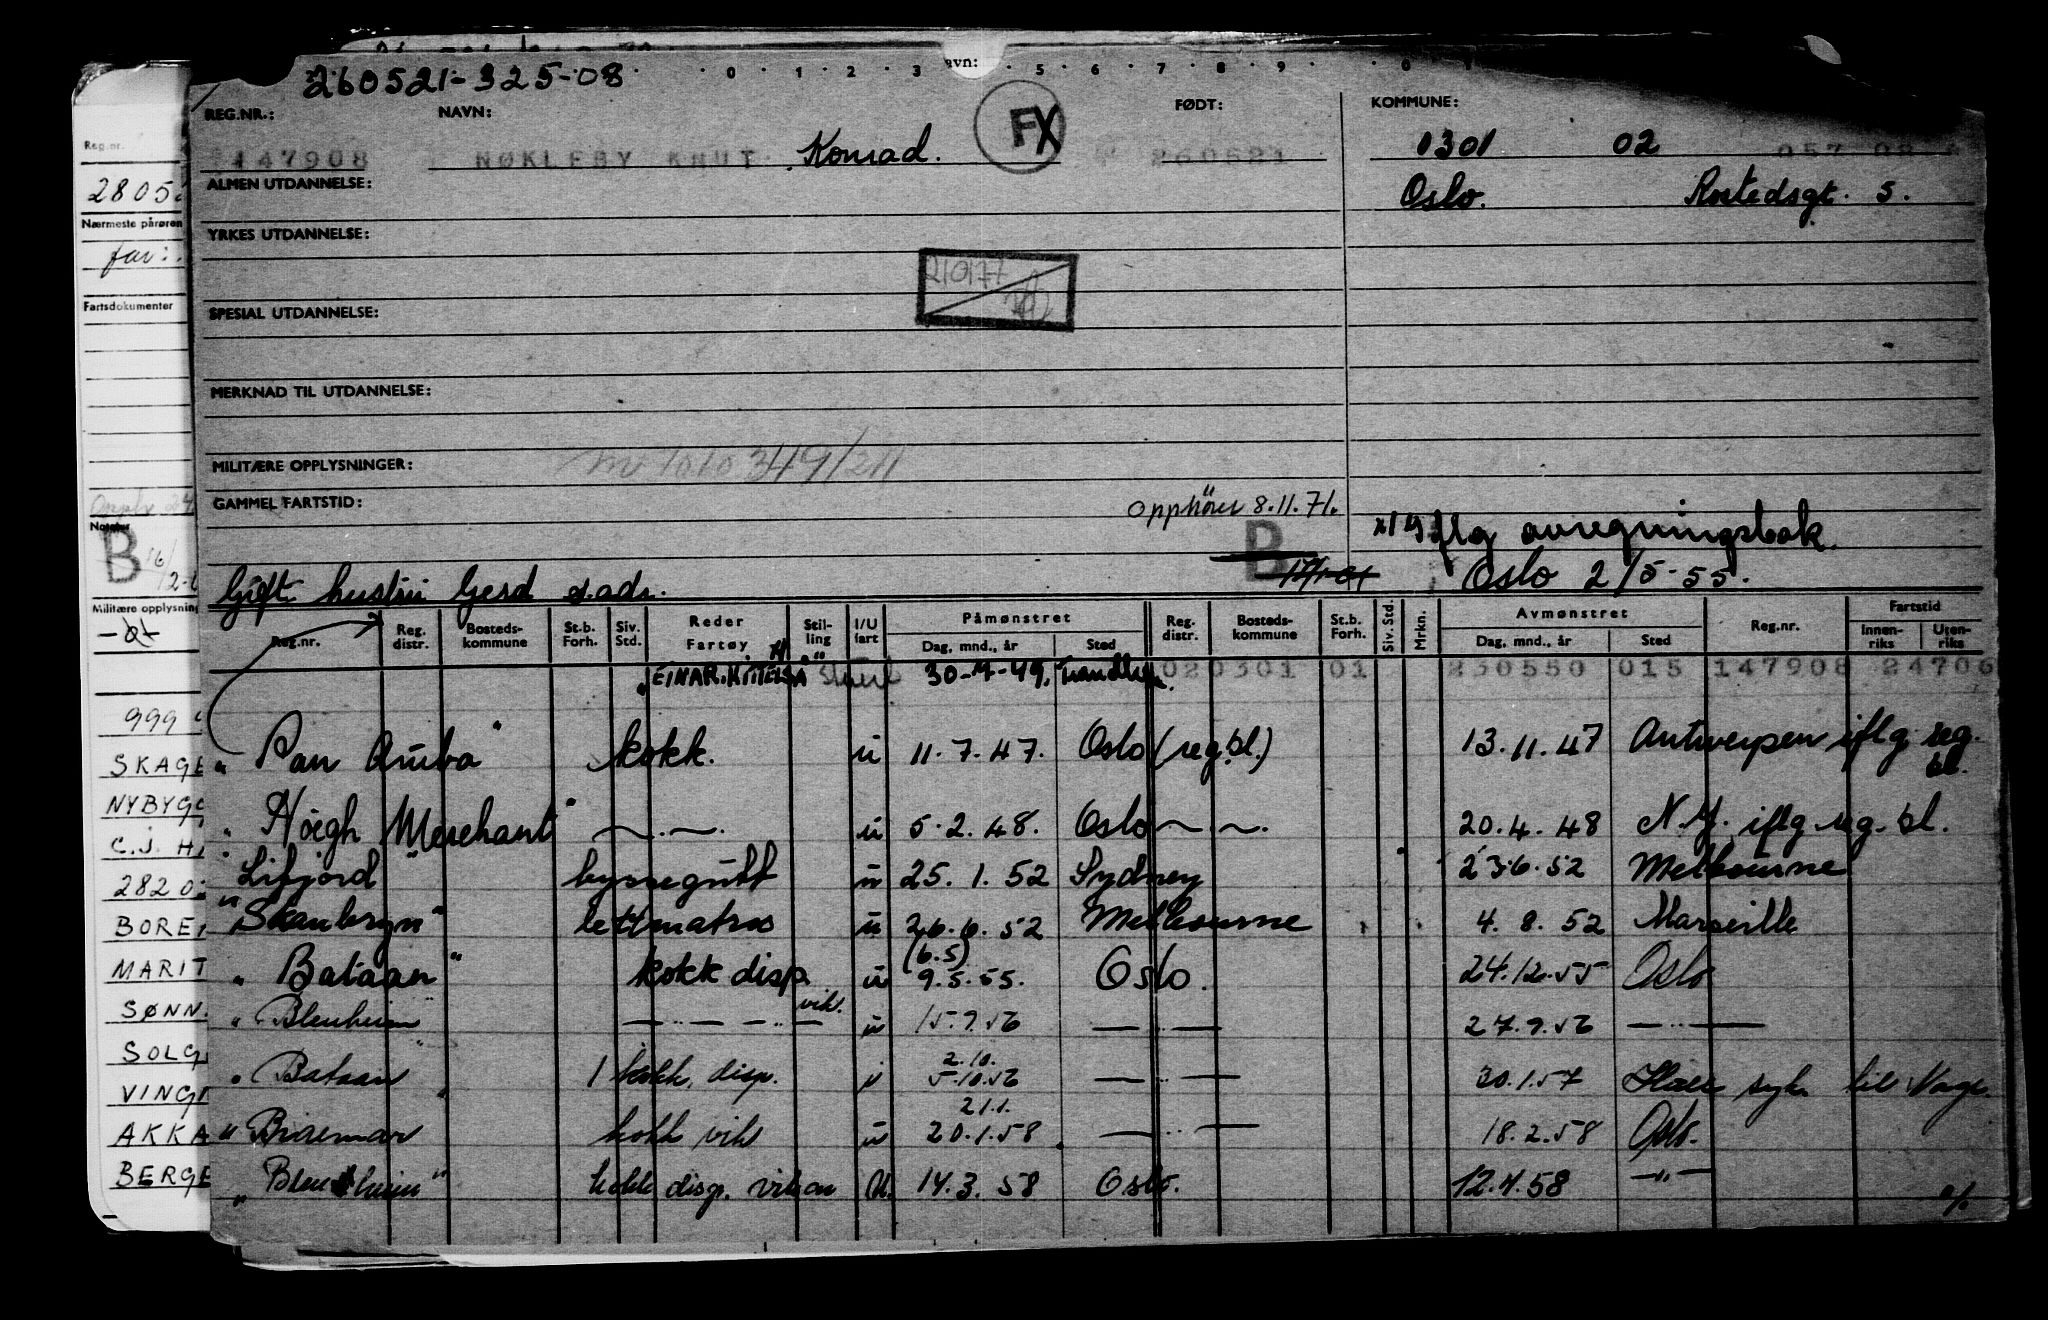 260521-325-08
0 1 2 3 avn: 5 6 7 8 9 0
REG.NR.: NAVN: FX FØDT: KOMMUNE:
147908 NØKLEBY KNUT Konrad. 260521 1301 02
ALMEN UTDANNELSE: Oslo. Rostedsgt. 5.
YRKES UTDANNELSE:
210177
SPESIAL UTDANNELSE:
MERKNAD TIL UTDANNELSE:
MILITÆRE OPPLYSNINGER:
GAMMEL FARTSTID: Opphører 8.11.71.
B iflg avregningsbok.
Oslo 2/5-55.
Gift hustru Gerd s.adr.
Reg.nr. Reg. distr. Bosteds-kommune St.b. Forh. Siv. Std. Reder Fartøy Stil-ling I/U fart Påmønstret Dag, mnd., år Sted Reg. distr. Bosteds-kommune St.b. Forh. Siv. Std. Mrkn. Avmønstret Dag, mnd., år Sted Reg.nr. Fartstid Innen-riks Uten-riks
30-7-49. 020301 01 230550 015 147908 24706
"Pan Aruba" kokk. u 11.7.47. Oslo (reg.bl.) 13.11.47 Antwerpen iflg reg. bl.
"Höegh Merchant" u 5.2.48. Oslo 20.4.48 N.Y. iflg reg. bl.
"Lifjord" byssegutt u 25.1.52 Sydney 23.6.52 Melbourne
"Skaubryn" lettmatros u 26.6.52 Melbourne 4.8.52 Marseille
"Bataan" kokk disp. u (6.5) 9.5.55. Oslo. 24.12.55 Oslo
"Blenheim" — " — " — vik. u 15.9.56 — " — 27.9.56 — " —
"Bataan" 1 kokk, disp. u 2.10. 5.10.56 — " — 30.1.57 syk til Norge
"Braemar" kokk vik u 21.1. 20.1.58. — " — 18.2.58 Oslo.
"Blenheim" kokk disp. vikar U. 14.3.58 Oslo. 12.4.58 — " —
Reg.nr.
2805
Nærmeste pårøren
far:
Fartsdokumenter
Notater
B 16/
Militære opplysning
999
SKAGE
NYBYGG
C.J. HA
282 O
BORE
MARIT
SØNN
SOLG
VING
AKKA
BERGE